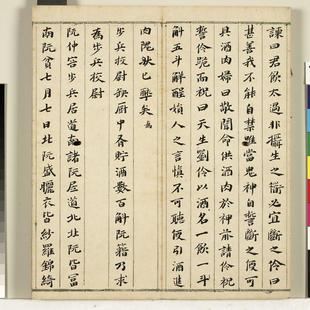 諫曰君飲太過非攝生之道必宜斷之伶曰
甚善我不能自禁唯當鬼神自誓斷之便可
具酒肉婦曰敬聞命供酒肉於神前請伶祝
誓伶跪而祝曰天生劉伶以酒名一飲一斗
斛五斗解酲婦人之言慎不可聽便引酒進
肉隗然已醉矣
為
步兵校尉缺厨中有貯酒數百斛阮籍乃求
為步兵校尉
阮仲容步兵居道南諸阮居道北北阮皆富
南阮貧七月七日北阮盛曬衣皆紗羅錦綺